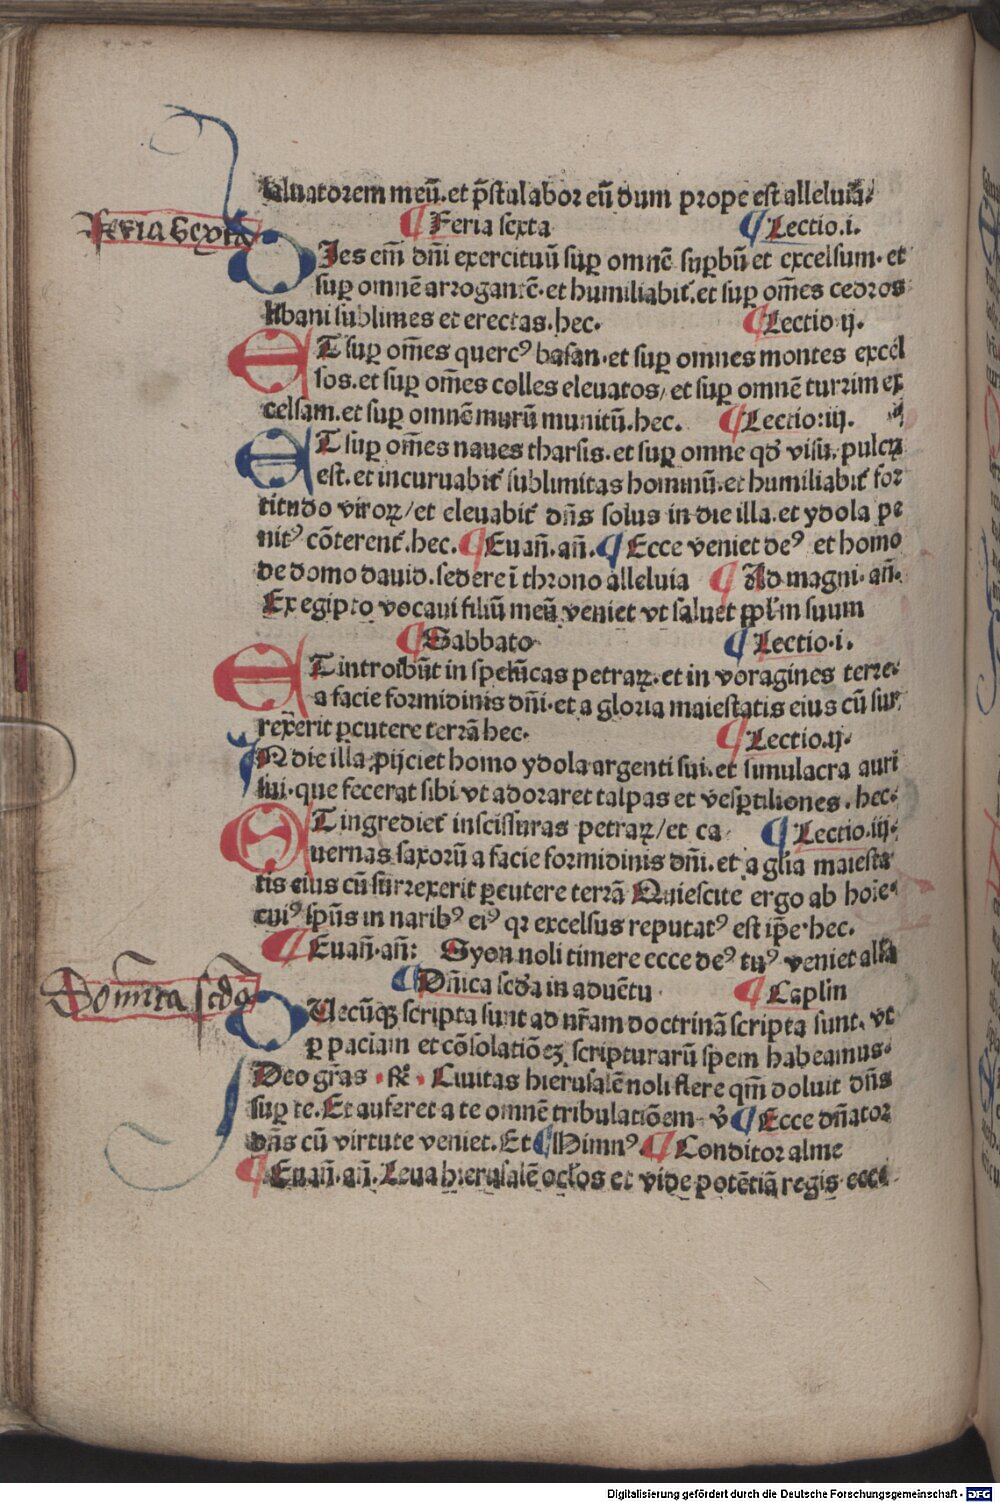 saluatorem meū. et p̄stolabor eū dum prope est alleluia.
Feria Sexta
¶ Feria sexta ¶ Lectio. i.
DIes em̄ dn̄i exercituū suꝑ omnē suꝑbū et excelsum. et
suꝑ omnē arrogantē. et humiliabit᷑. et suꝑ om̄es cedros
libani sublimes et erectas. hec. ¶ Lectio ij.
ET suꝑ om̄es quercꝰ basan. et suꝑ omnes montes excel
sos. et suꝑ om̄es colles eleuatos / et suꝑ omnē turrim ex
celsam. et suꝑ omnē murū munitū. hec. ¶ Lectio: iij.
ET suꝑ om̄es naues tharsis. et suꝑ omne qd̄ visu pulcꝝ
est. et incuruabit᷑ sublimitas hominū. et humiliabit᷑ for
titudo viroꝝ / et eleuabit᷑ dn̄s solus in die illa. et ydola pe
nitꝰ cōterent᷑. hec. ¶ Euan̄. an̄. ¶ Ecce veniet deꝰ et homo
de domo dauid. sedere ī throno alleluia ¶ Ad magni. an̄.
Ex egipto vocaui filiū meū veniet vt saluet ppl̄m suum
¶ Sabbato ¶ Lectio. i.
ET introibūt in spelūcas petraꝝ. et in voragines terre.
a facie formidinis dn̄i. et a gloria maiestatis eius cū sur
rexerit ꝑcutere terrā hec. ¶ Lectio. ij.
IN die illa ꝓijciet homo ydola argenti sui. et simulacra auri
sui. que fecerat sibi vt adoraret talpas et vesꝑtiliones. hec.
ET ingrediet᷑ in scissuras petraꝝ / et ca ¶ Lectio. iij.
uernas saxorū a facie formidinis dn̄i. et a gl̄ia maiesta
tis eius cū surrexerit ꝑcutere terrā Quiescite ergo ab hoīe
cuiꝰ sp̄us in naribꝰ eiꝰ qꝛ excelsus reputatꝰ est ip̄e. hec.
¶ Euan̄. an̄: Syon noli timere ecce deꝰ tuꝰ veniet all̄a
Domīca scd̄a
¶ Dn̄ica scd̄a in aduētu ¶ Caplm̄
QUecūqꝫ scripta sunt ad nr̄am doctrinā scripta sunt. vt
ꝑ paciam et cōsolatiōeꝫ scripturarū spem habeamus.
Deo gr̄as . ℟. Ciuitas hierusalē noli flere qm̄ doluit dn̄s
suꝑ te. Et auferet a te omnē tribulatiōem. v̄ ¶ Ecce dn̄ator
dn̄s cū virtute veniet. Et ¶ Himnꝰ. ¶ Conditor alme
¶ Euan̄. an̄. Leua hierusalē oc̄los et vide potētiā regis ecce
Digitalisierung gefördert durch die Deutsche Forschungsgemeinschaft - DFG